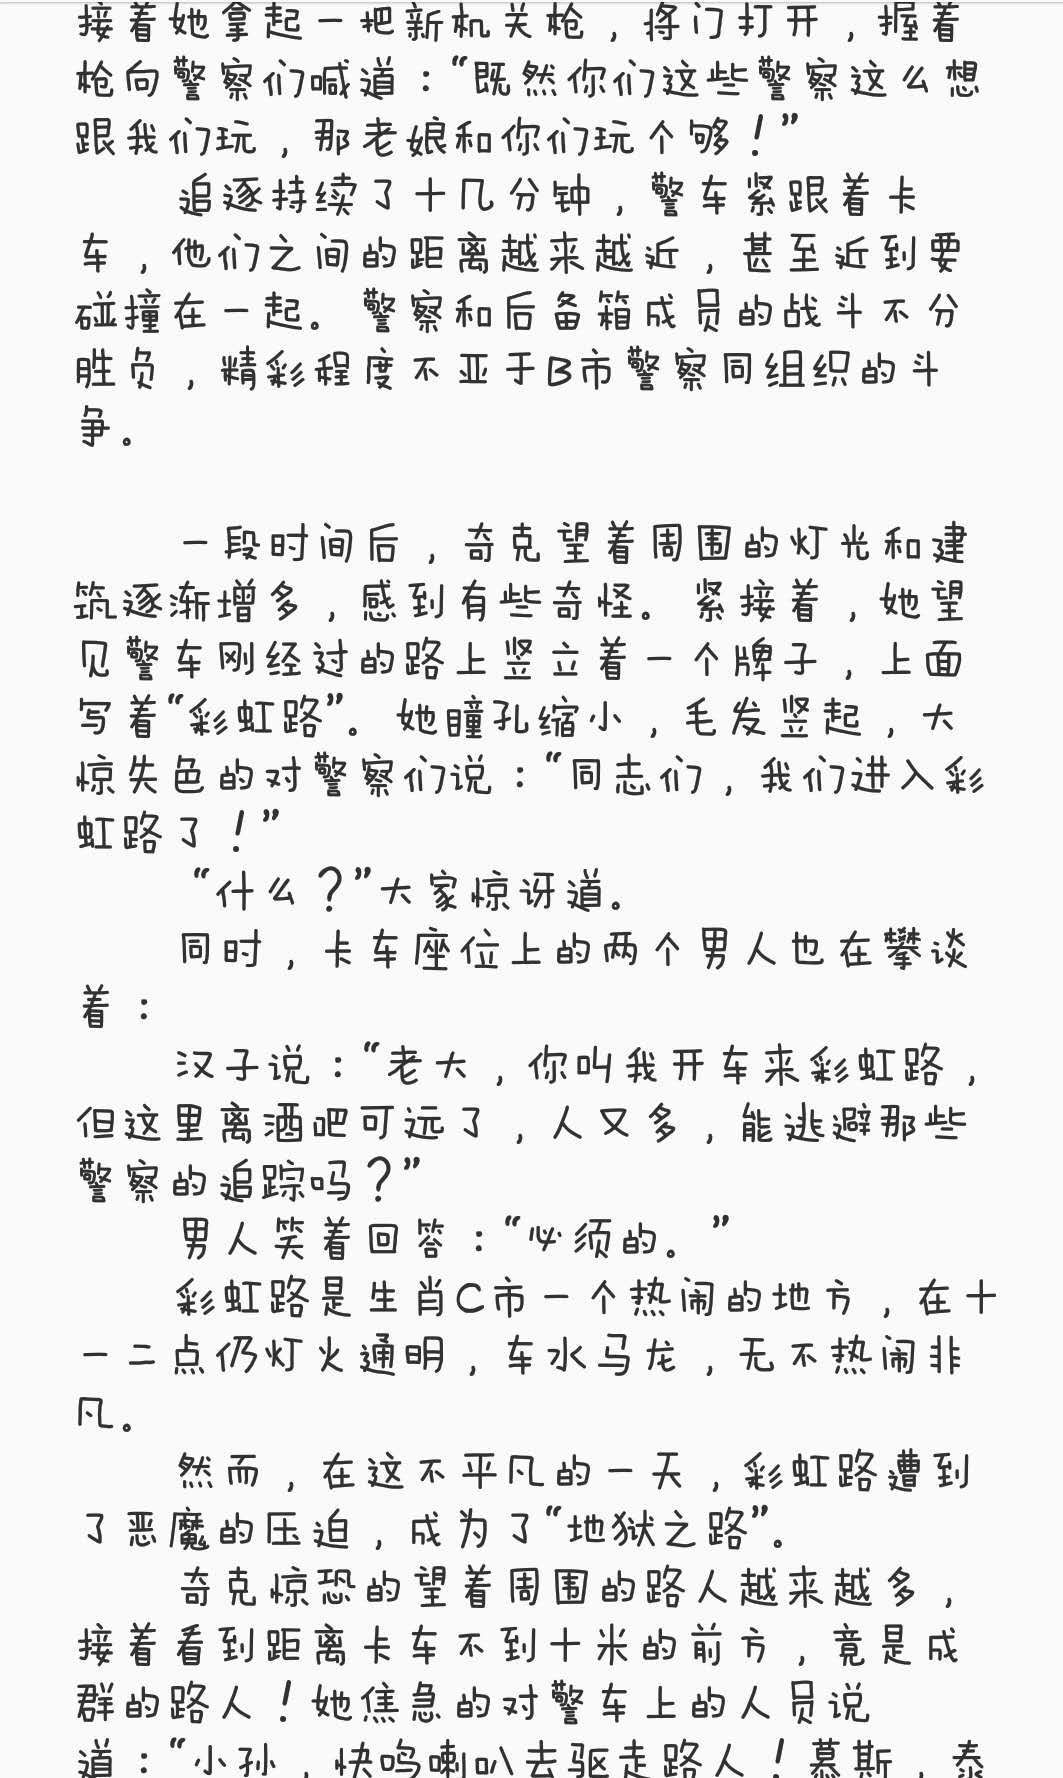 接着她拿起一把新机关枪，将门打开，握着
枪向警察们喊道：“既然你们这些警察这么想
跟我们玩，那老娘和你们玩个够！”
追逐持续了十几分钟，警车紧跟着卡
车，他们之间的距离越来越近，甚至近到要
碰撞在一起。警察和后备箱成员的战斗不分
胜负，精彩程度不亚于B市警察同组织的斗
争。
一段时间后，奇克望着周围的灯光和建
筑逐渐增多，感到有些奇怪。紧接着，她望
见警车刚经过的路上竖立着一个牌子，上面
写着“彩虹路”。她瞳孔缩小，毛发竖起，大
惊失色的对警察们说：“同志们，我们进入彩
虹路了！”
“什么？”大家惊讶道。
同时，卡车座位上的两个男人也在攀谈
着：
汉子说：“老大，你叫我开车来彩虹路，
但这里离酒吧可远了，人又多，能逃避那些
警察的追踪吗？”
男人笑着回答：“必须的。”
彩虹路是生肖C市一个热闹的地方，在十
一二点仍灯火通明，车水马龙，无不热闹非
凡。
然而，在这不平凡的一天，彩虹路遭到
了恶魔的压迫，成为了“地狱之路”。
奇克惊恐的望着周围的路人越来越多，
接着看到距离卡车不到十米的前方，竟是成
群的路人！她焦急的对警车上的人员说
道：“小孙，快鸣喇叭去驱走路人！慕斯，泰